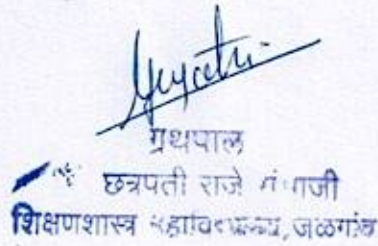 ग्रथपाल
छत्रपती राजे संभाजी
शिक्षणशास्त्र महाविद्यालय, जळगांव